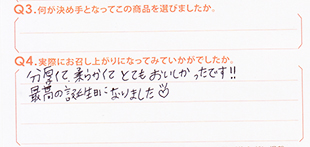 Q3.何が決め手となってこの商品を選びましたか。
Q4.実際にお召し上がりになってみていかがでしたか。
分厚くて、柔らかくて とてもおいしかったです!!
最高の誕生日になりました♡